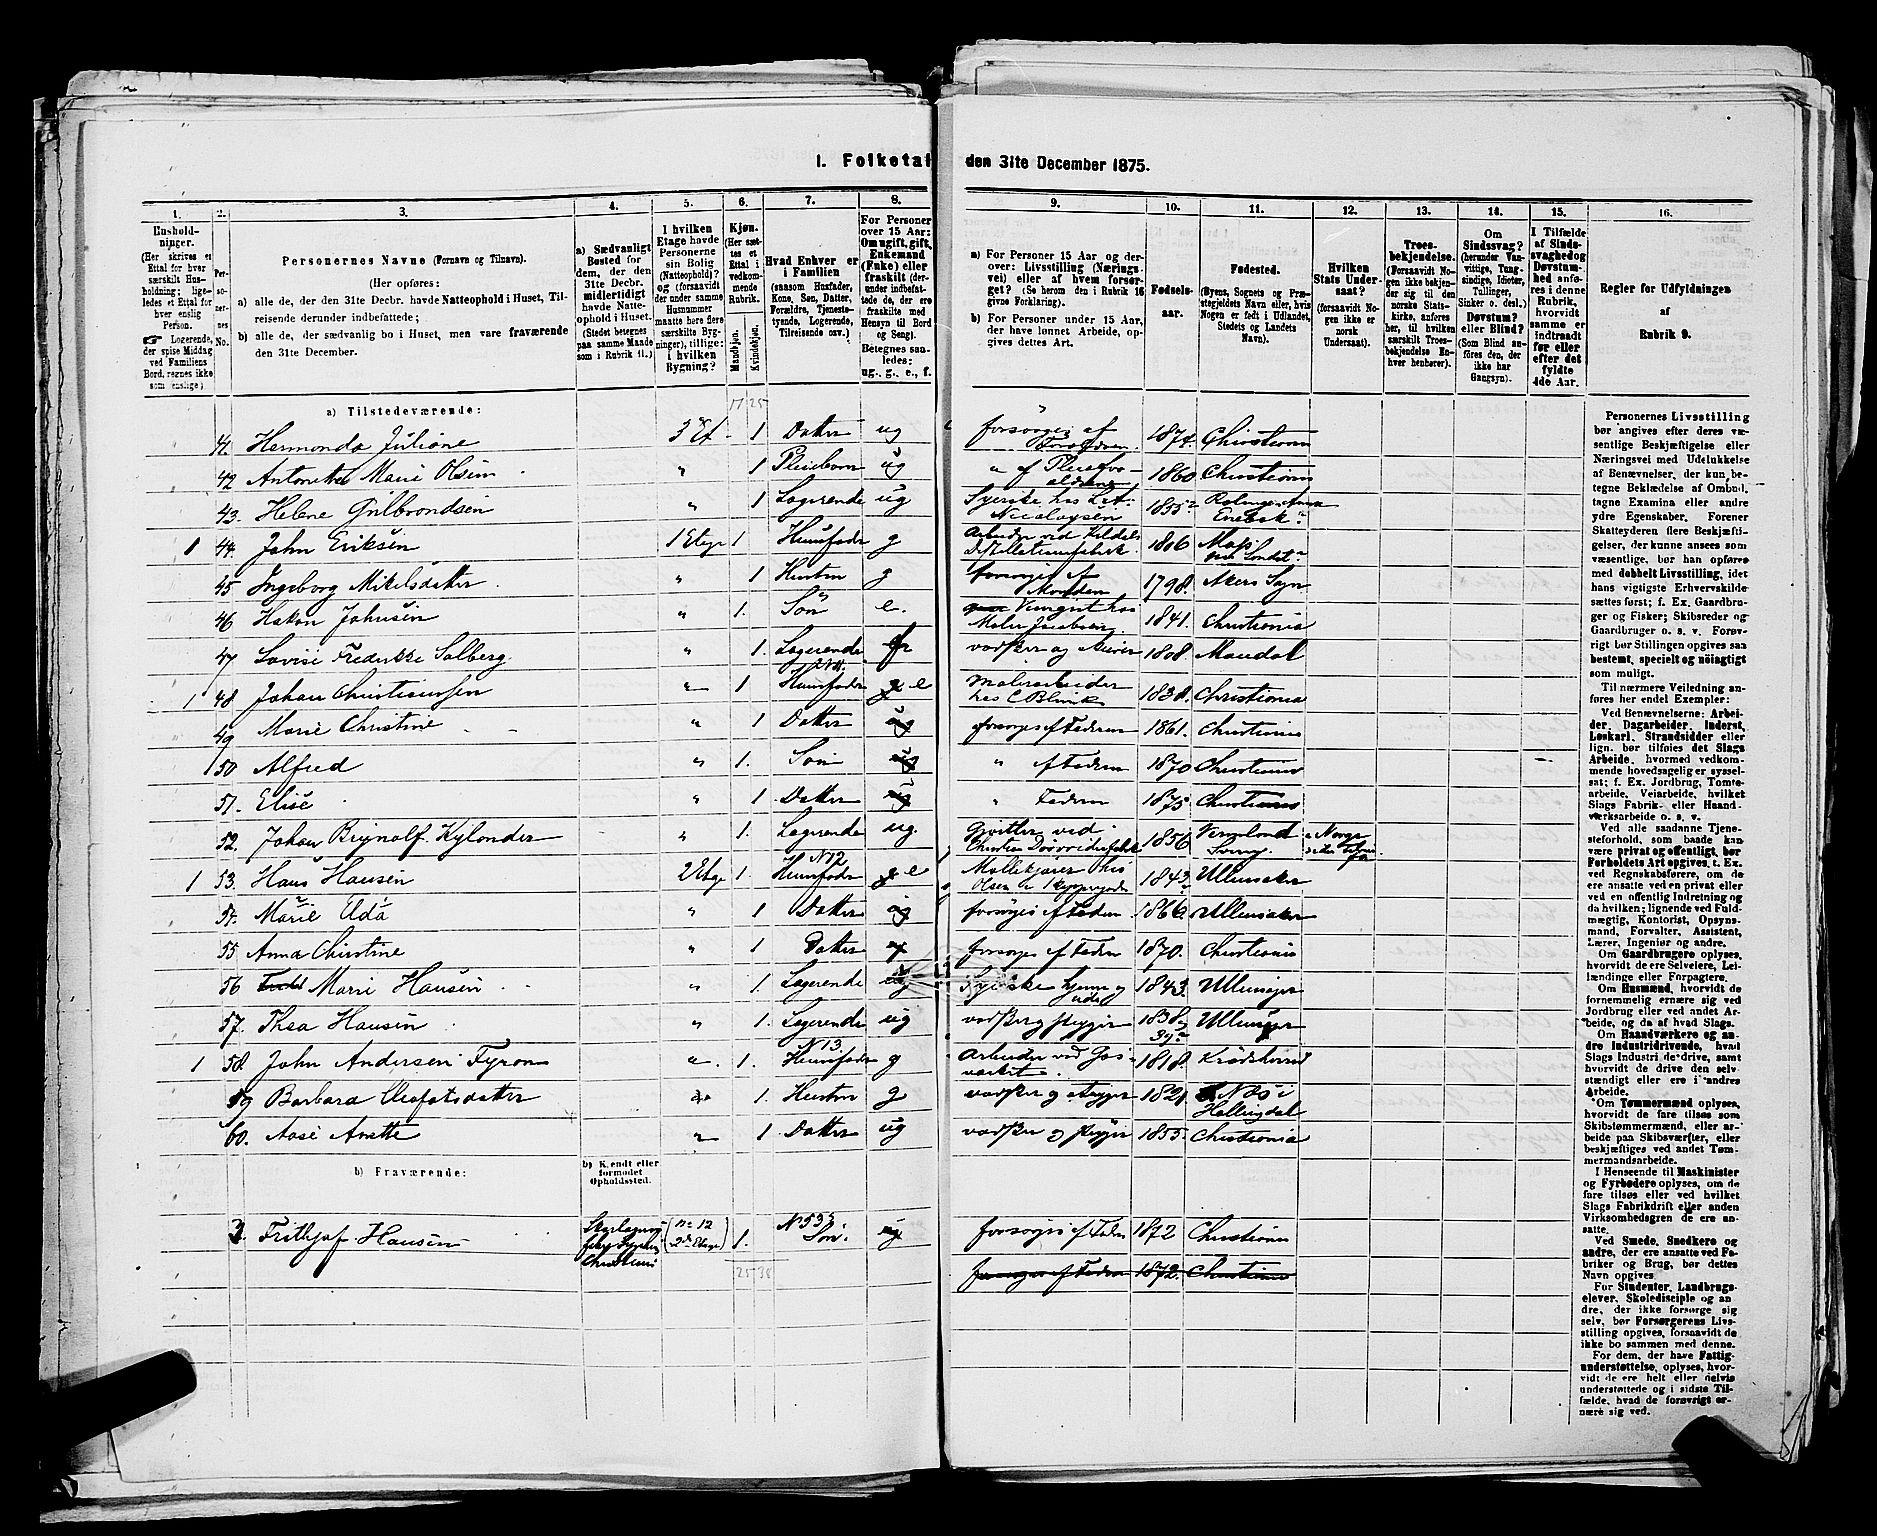 1. Folketal den 31te December 1875.
1. 2. 3. 4. 5. 6. 7. 8. 9. 10. 11. 12. 13. 14. 15. 16.
Husholdninger.
(Her skrives et Ettal for hver særskilt Husholdning; ligeledes et Ettal for hver enslig Person.
☞ Logerende, der spise Middag ved Familiens Bord, regnes ikke som enslige.)
Personernes No.
Personernes Navne (Fornavn og Tilnavn).
(Her opføres:
a) alle de, der den 31te Decbr. havde Natteophold i Huset, Tilreisende derunder indbefattede;
b) alle de, der sædvanlig bo i Huset, men vare fraværende den 31te December.
a) Sædvanligt Bosted for dem, der den 31te Decbr. midlertidigt havde Natteophold i Huset.
(Stedet betegnes paa samme Maade som i Rubrik 11.)
I hvilken Etage havde Personerne sin Bolig (Natteophold)? og (forsaavidt der under samme Husnummer maatte høre flere særskilte Bygninger), tillige: i hvilken Bygning?
Kjøn.
(Her sættes et Ettal i vedkommende Rubrik.
Mandkjøn.
Kvindekjøn.
Hvad Enhver er i Familien
(saasom Husfader, Kone, Søn, Datter, Forældre, Tjenestetyende, Logerende, Tilreisende osv.)
For Personer over 15 Aar: Om ugift, gift, Enkemand (Enke) eller fraskilt (derunder indbefattede de, der ere fraskilte med Hensyn til Bord og Seng).
Betegnes saaledes:
ug., g., e., f.
a) For Personer 15 Aar og derover: Livsstilling (Næringsvei) eller af hvem forsørget? (Se herom den i Rubrik 16 givne Forklaring).
b) For Personer under 15 Aar, der have lønnet Arbeide, opgives dettes Art.
Fødselsaar.
Fødested.
(Byens, Sognets og Præstegjeldets Navn eller, hvis Nogen er født i Udlandet, Stedets og Landets Navn).
Hvilken Stats Undersaat?
(forsaavidt Nogen ikke er norsk Undersaat).
Troesbekjendelse.
(Forsaavidt Nogen ikke bekjender sig til den norske Statskirke, anføres her, til hvilken særskilt Troesbekjendelse Enhver henhører).
Om Sindssvag?
(herunder Vanvittige, Tungsindige, Idioter, Tullinger, Sinker o. desl.)
Døvstum? eller Blind?
(Som Blind anføres den, der ikke har Gangsyn).
I Tilfælde af Sindssvaghed og Døvstumhed anføres i denne Rubrik, hvorvidt samme er indtraadt før eller efter det fyldte 4de Aar.
Regler for Udfyldningen
af
Rubrik 9.
a) Tilstedeværende: 17 25
41. Hermonda Juliane 3 Et 1 Datter ug forsørges af Forældrene 1874. Christiania
42 Antonette Marie Olsen " 1 Pleiebarn ug " af Pleieforældrene 1860 Christiania
43. Helene Gulbrandsen " 1 Logerende ug Syerske hos Nicolaysen 1855 Enebak
1 44. John Eriksen 1 Etage 1 Husfader g Arbeider ved Kildals Destillationsfabrik 1806
45 Ingeborg Mikelsdatter " 1 Hustru g forsørges af Manden 1798. Akers Sogn
46 Hakon Johnsen " 1. Søn e. hos Maler Jacobsen 1841. Christiania
47 Lovise Fredrikke Solberg " 1. Logerende vasker og 1808. Mandal
1 48. Johan Christiansen " 1 Husfader g e Malerarbeider hos C Blunk 1838. Christiania
49 Marie Christine " 1 Datter ug forsørges af Faderen 1861. Christiania
50 Alfred " 1. Søn ug " af Faderen 1870 Christiania
51. Elise " 1 Datter ug " Faderen 1875 Christiania
52. Johan Brynolf Kylander " 1. Logerende ug. ved Christian 1856 Vermland
1 53. Hans Hansen 2 Etage 1. No 12 Husfader g e hos Olsen 1843. Ullensaker
54. Marie Elda " 1 Datter ug forsørges af Faderen 1866. Ullensaker
55 Anna Christine " 1 Datter ug forsørges af Faderen 1870. Christiania
56 Marie Hansen " 1. Logerende ug Syerske hjemme og ude 1843. Ullensager
57. Thea Hansen " 1. Logerende ug vasker og stryger 1838 Ullensager
1 58. John Andersen Fyron " 1. N 13. Husfader g Arbeider ved Gasværket. 1818. Krødsherred
59 Barbara Olafsdatter " 1. Hustru g vasker og stryger 1821. Næs i Hallingdal
60. Aase Anette " 1 Datter ug vasker og stryger 1855. Christiania
b) Fraværende:
b) Kjendt eller formodet Opholdssted.
3. Frithjof Hansen Christiania (No 12 2den Etage) 1. No 53 Søn. ug forsørges af Faderen 1872 Christiania
25 38
forsørges af Faderen 1872. Christiania
Personernes Livsstilling
bør angives efter deres væ-
sentlige Beskjæftigelse eller
Næringsvei med Udelukkelse
af Benævnelser, der kun be-
tegne Beklædelse af Ombud,
tagne Examina eller andre
ydre Egenskaber. Forener
Skatteyderen flere Beskjæfti-
gelser, der kunne ansees som
væsentlige, bør han opføres
med dobbelt Livsstilling, idet
hans vigtigste Erhvervskilde
sættes først; f. Ex. Gaardbru-
ger og Fisker; Skibsreder og
Gaardbruger o. s. v. Forøv-
rigt bør Stillingen opgives saa
bestemt, specielt og nøiagtigt
som muligt.
Til nærmere Veiledning an-
føres her endel Exempler:
Ved Benævnelserne: Arbei-
der, Dagarbeider, Inderst,
Løskarl, Strandsidder eller
lign. bør tilføies det Slags
Arbeide, hvormed vedkom-
mende hovedsagelig er syssel-
sat; f. Ex. Jordbrug, Tomte-
arbeide, Veiarbeide, hvilket
Slags Fabrik- eller Haand-
værksarbeide o. s. v.
Ved alle saadanne Tjene-
steforhold, som baade kan
være private og offentlige, bør
Forholdets Art opgives, t. Ex.
ved Regnskabsførere, om de
ere ansatte ved en privat eller
ved en offentlig Indretning og
da hvilken; lignende ved Fuld-
mægtig, Kontorist, Opsyns-
mand, Forvalter, Assistent,
Lærer, Ingeniør og andre.
Om Gaardbrugere oplyses,
hvorvidt de ere Selveiere, Lei-
lændinge eller Forpagtere.
Om Husmænd, hvorvidt de
fornemmelig ernære sig ved
Jordbrug eller ved andet Ar-
beide, og da af hvad Slags.
Om Haandværkere og an-
dre Industridrivende, hvad
Slags Industri de drive, samt
hvorvidt de drive den selv-
stændigt eller ere i andres
Arbeide.
Om Tømmermænd oplyses,
hvorvidt de fare tilsøs som
Skibstømmermænd, eller ar-
beide paa Skibsværfter, eller
beskjæftiges ved andet Tøm-
mermandsarbeide.
I Henseende til Maskinister
og Fyrbødere oplyses, om de
fare tilsøs eller ved hvilket
Slags Fabrikdrift eller anden
Virksomhed de ere an-
satte.
Ved Smede, Snedkere og
andre, der ere ansatte ved Fa-
briker og Brug, bør dettes
Navn opgives.
For Studenter, Landbrugs-
elever, Skoledisciple og an-
dre, der ikke forsørge sig
selv, bør Forsørgerens Livs-
stilling opgives, forsaavidt de
ikke bo sammen med denne.
For dem, der have Fattig-
understøttelse, oplyses, hvor-
vidt de ere helt eller delvis
understøttede og i sidste Til-
fælde, hvad de forøvrigt er-
nære sig ved.